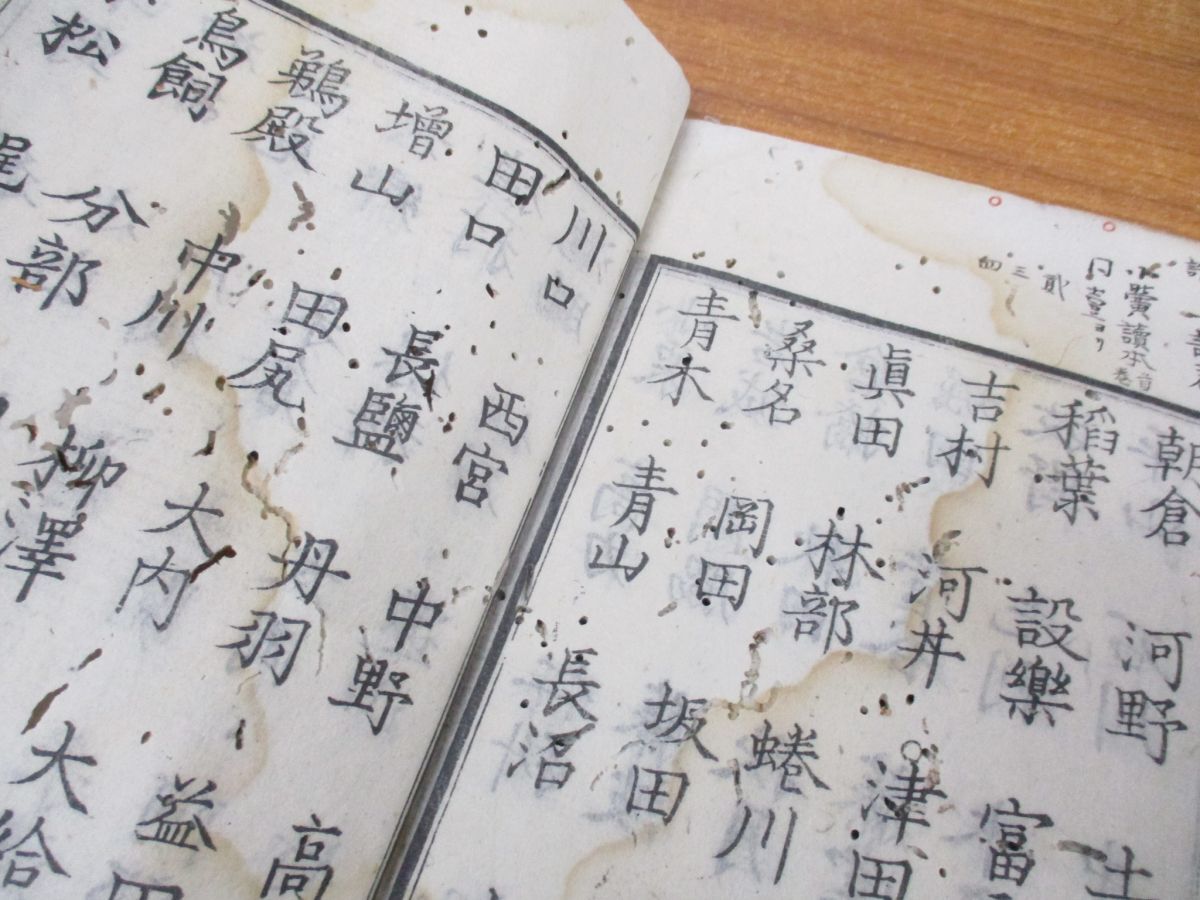 朝倉 河野 土
稻葉 設樂 富
吉村 河井 津田
眞田 林部 蜷川
桑名 岡田 坂田
青木 青山 長沼
讀本
三
四
川口 西宮 中野 高
田口 長鹽 丹羽 益
增山 田尻 大内 大給
鵜殿 中川 柳澤
鳥飼 分部
松 尾